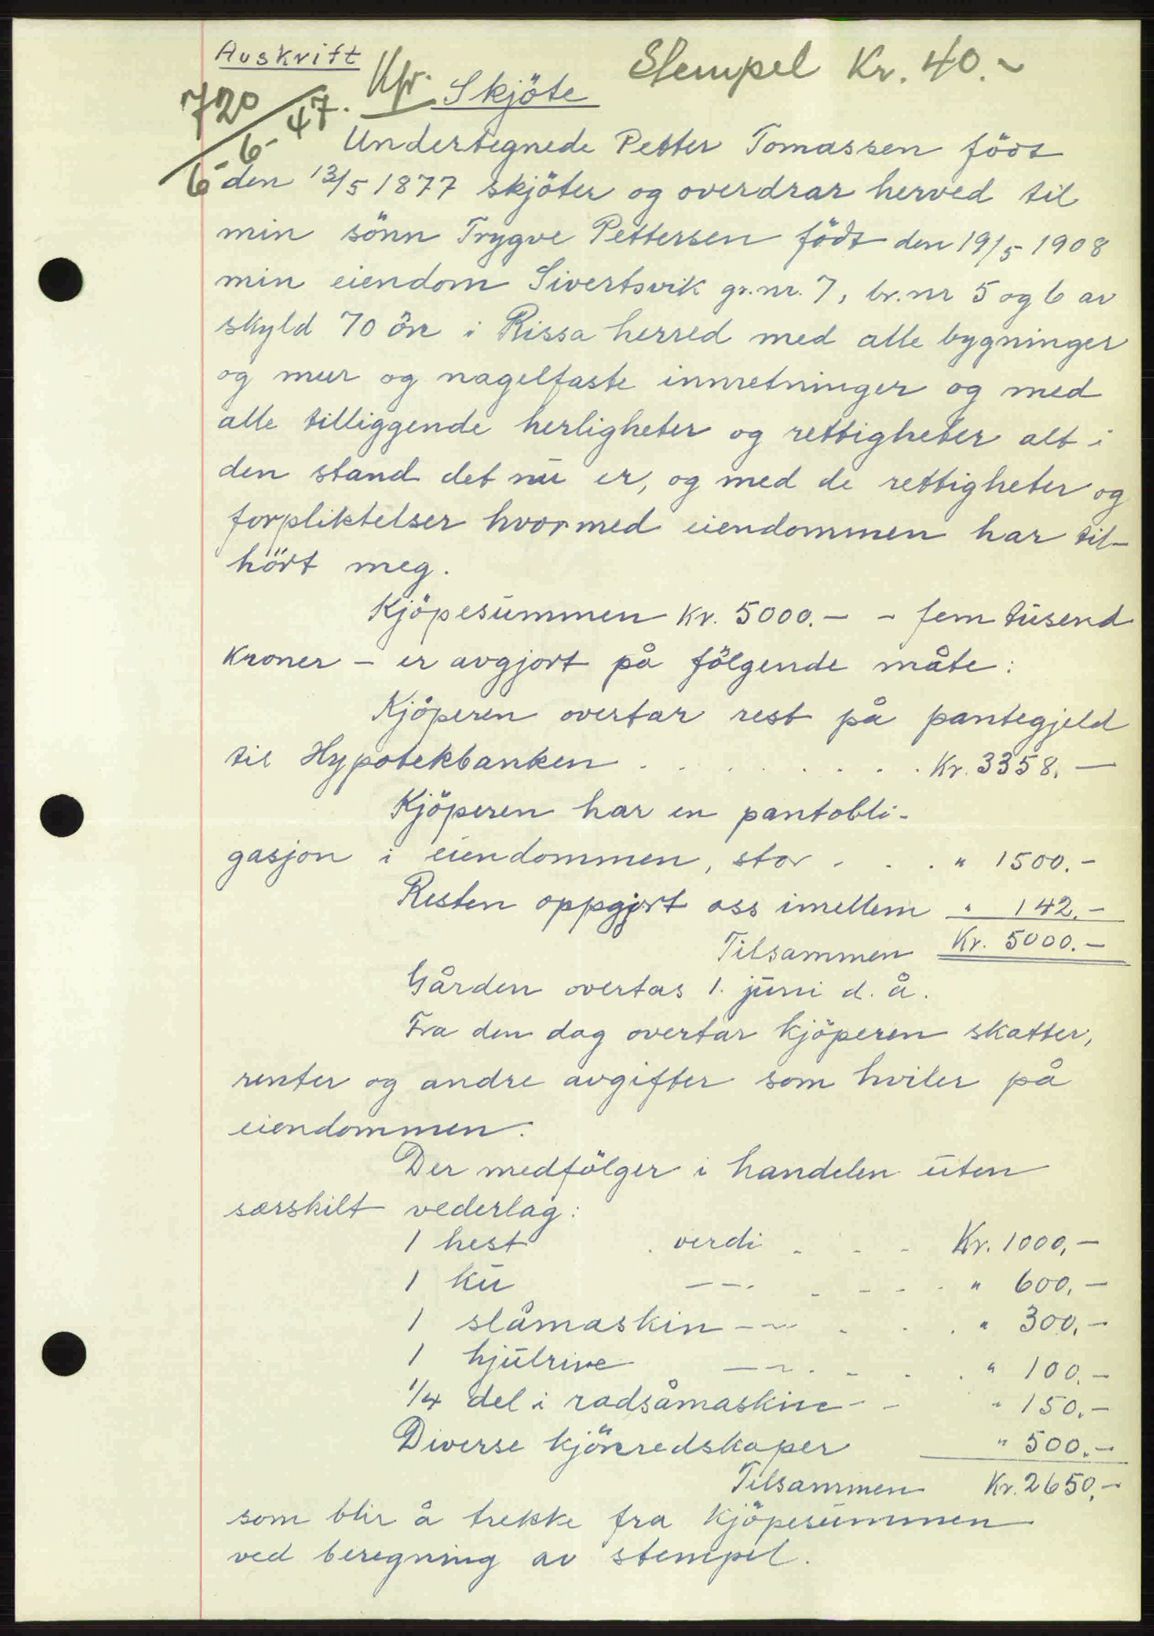 Avskrift
Stempel Kr. 40.-
720/6-6-47. Kfr.
Skjöte
Undertegnede Petter Tomassen födt
den 13/5 1877 skjöter og overdrar herved til
min sönn Trygve Pettersen födt den 19/5 1908
min eiendom Sivertsvik gr.nr. 7, br.nr 5 og 6 av
skyld 70 öre i Rissa herred med alle bygninger
og mur og nagelfaste innretninger og med
alle tilliggende herligheter og rettigheter alt i
den stand det nu er, og med de rettigheter og
forpliktelser hvormed eiendommen har til-
hört meg.
Kjöpesummen Kr. 5000.- - fem tusend
Kroner - er avgjort på fölgende måte:
Kjöperen overtar rest på pantegjeld
til Hypotekbanken . . . . . . . Kr. 3358,-
Kjöperen har en pantobli-
gasjon i eiendommen, stor . . . " 1500.-
Resten oppgjort oss imellem " 142.-
Tilsammen Kr. 5000.-
Gården overtas 1. juni d. å.
Fra den dag overtar kjöperen skatter,
renter og andre avgifter som hviler på
eiendommen.
Der medfölger i handelen uten
særskilt vederlag:
1 hest . verdi . - - Kr. 1000,-
1 ku -- . . - - . " 600,-
1 slåmaskin -- . . . " 300,-
1 hjulrive -- . . . . " 100.-
1/4 del i radsåmaskin - - " 150.-
Diverse kjöreredskaper " 500.-
Tilsammen Kr. 2650,-
som blir å trekke fra Kjöpesummen
ved beregning av stempel.